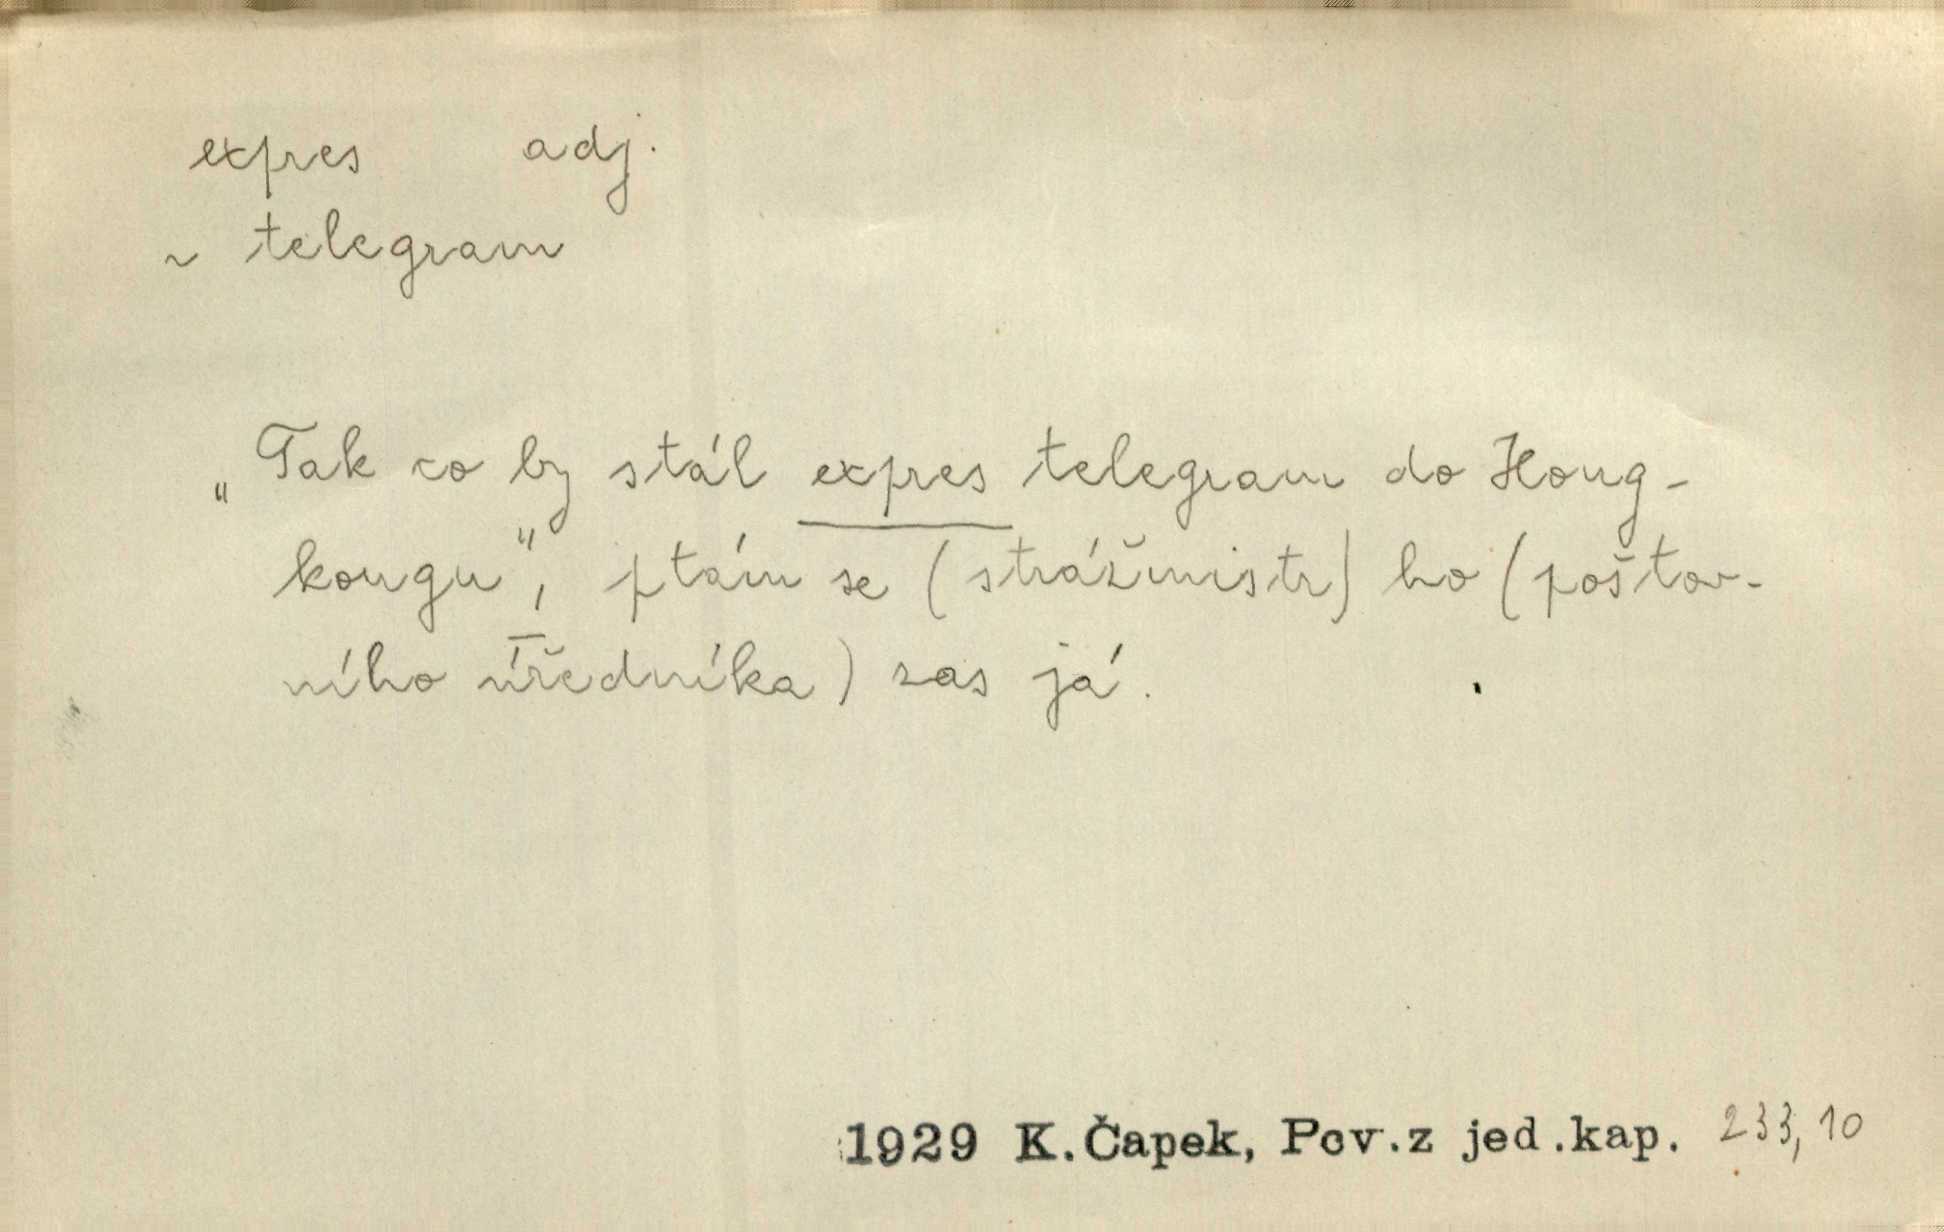 expres adj.
~ telegram
„Tak co by stál expres telegram do Hong-
kongu“, ptám se (strážmistr) ho (poštov-
ního úředníka) zas já.
1929 K.Čapek, Pov.z jed.kap. 233, 10